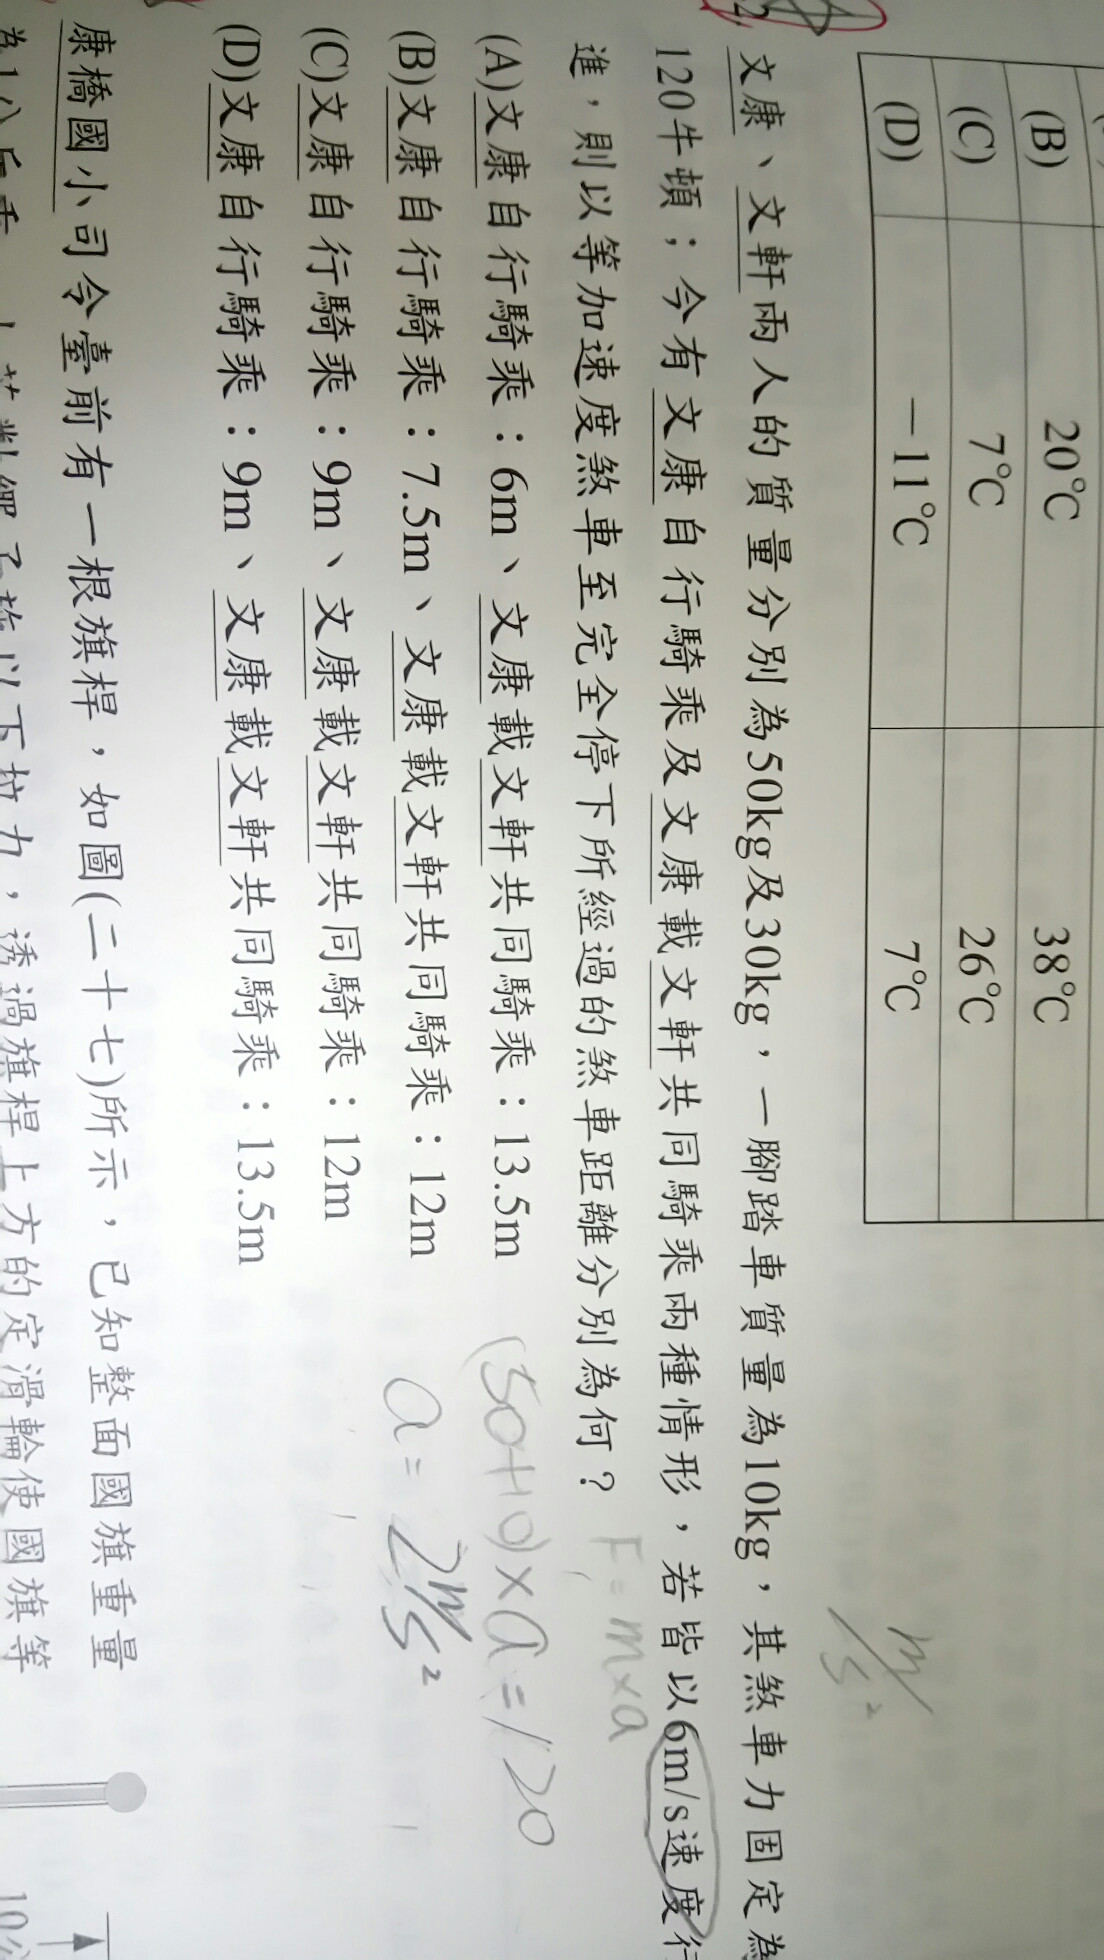 (B) 20℃ 38℃
(C) 7℃ 26℃
(D) －11℃ 7℃
文康、文軒兩人的質量分別為50kg及30kg，一腳踏車質量為10kg，其煞車力固定為
120牛頓；今有文康自行騎乘及文康載文軒共同騎乘兩種情形，若皆以6m/s速度行
進，則以等加速度煞車至完全停下所經過的煞車距離分別為何？
(A)文康自行騎乘：6m、文康載文軒共同騎乘：13.5m
(B)文康自行騎乘：7.5m、文康載文軒共同騎乘：12m
(C)文康自行騎乘：9m、文康載文軒共同騎乘：12m
(D)文康自行騎乘：9m、文康載文軒共同騎乘：13.5m
m/s²
F=m×a
(50+10)×a=120
a=2m/s²
康橋國小司令臺前有一根旗桿，如圖(二十七)所示，已知整面國旗重量
以下拉力，透過旗桿上方的定滑輪使國旗等